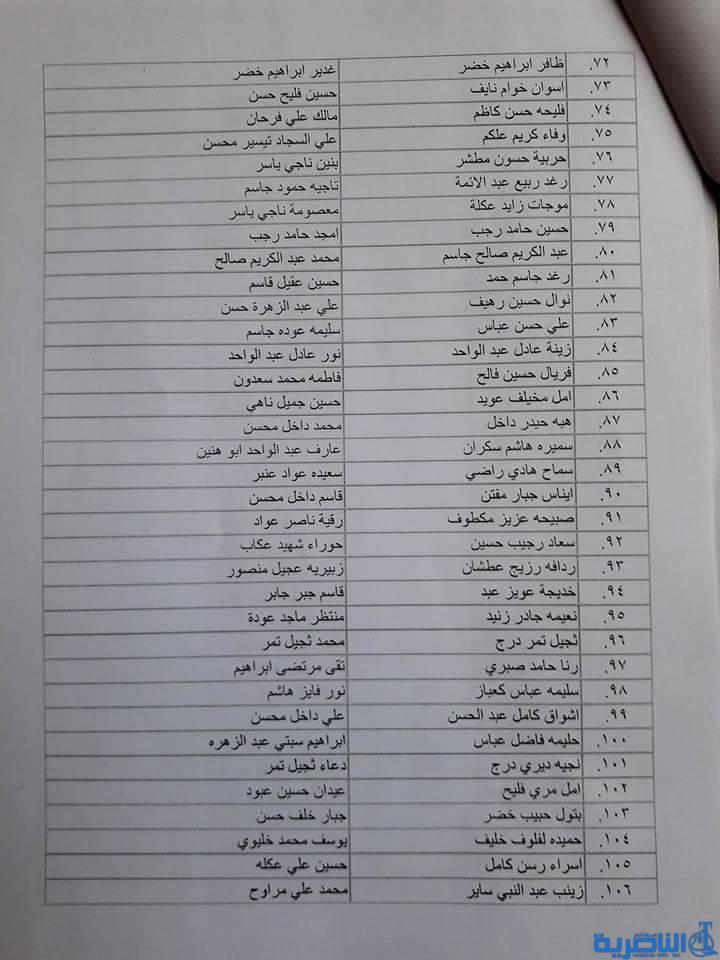 ٧٢. ظافر ابراهيم خضر غدير ابراهيم خضر
٧٣. اسوان خوام نايف حسين فليح حسن
٧٤. فليحه حسن كاظم مالك علي فرحان
٧٥. وفاء كريم علكم علي السجاد تيسير محسن
٧٦. حربية حسون مطشر بنين ناجي ياسر
٧٧. رغد ربيع عبد الائمة تاجيه حمود جاسم
٧٨. موجات زايد عكلة معصومة ناجي ياسر
٧٩. حسين حامد رجب امجد حامد رجب
٨٠. عبد الكريم صالح جاسم محمد عبد الكريم صالح
٨١. رغد جاسم حمد حسين عقيل قاسم
٨٢. نوال حسين رهيف علي عبد الزهرة حسن
٨٣. علي حسن عباس سليمه عوده جاسم
٨٤. زينة عادل عبد الواحد نور عادل عبد الواحد
٨٥. فريال حسين فالح فاطمه محمد سعدون
٨٦. امل مخيلف عويد حسين جميل ناهي
٨٧. هبه حيدر داخل محمد داخل محسن
٨٨. سميره هاشم سكران عارف عبد الواحد ابو هنين
٨٩. سماح هادي راضي سعيده عواد عنبر
٩٠. ايناس جبار مفتن قاسم داخل محسن
٩١. صبيحه عزيز مكطوف رقية ناصر عواد
٩٢. سعاد رجيب حسين حوراء شهيد عكاب
٩٣. ردافه رزيج عطشان زبيريه عجيل منصور
٩٤. خديجة عويز عبد قاسم جبر جابر
٩٥. نعيمه جادر زنيد منتظر ماجد عودة
٩٦. ثجيل تمر درج محمد ثجيل تمر
٩٧. رنا حامد صبري تقى مرتضى ابراهيم
٩٨. سليمه عباس كعباز نور فايز هاشم
٩٩. اشواق كامل عبد الحسن علي داخل محسن
١٠٠. حليمه فاضل عباس ابراهيم سبتي عبد الزهره
١٠١. نجيه ديري درج دعاء ثجيل تمر
١٠٢. امل مري فليح عيدان حسين عبود
١٠٣. بتول حبيب خضر جبار خلف حسن
١٠٤. حميده لفلوف خليف يوسف محمد خليوي
١٠٥. اسراء رسن كامل حسين علي عكله
١٠٦. زينب عبد النبي ساير محمد علي مراوح
الناصرية